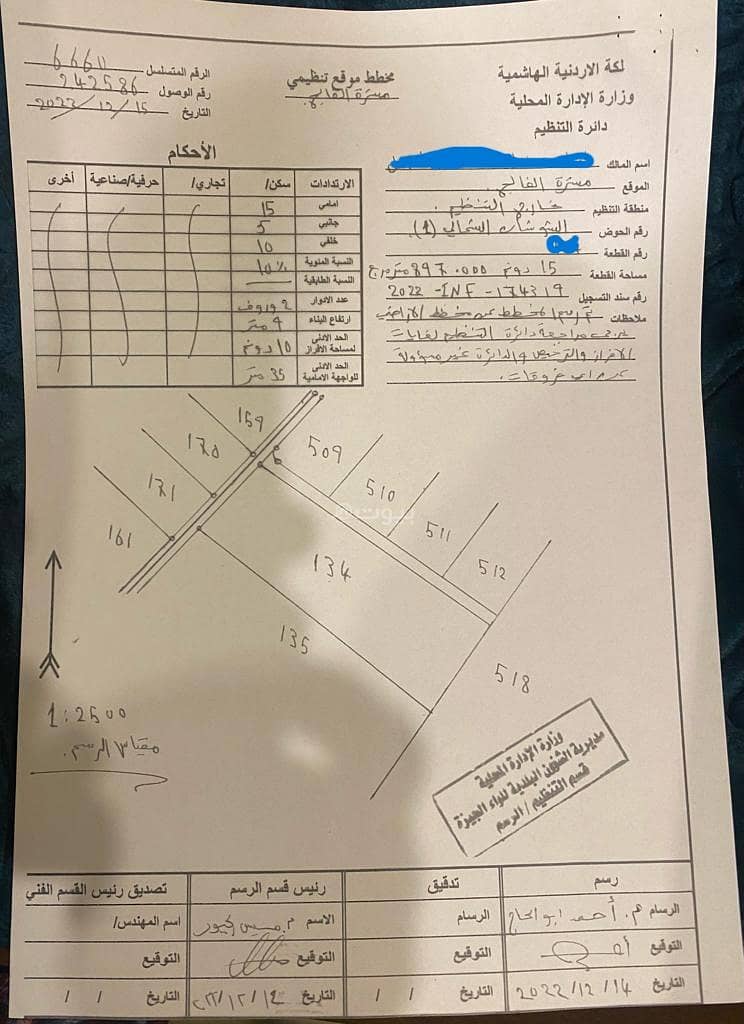 لكة الاردنية الهاشمية
وزارة الإدارة المحلية
دائرة التنظيم
مخطط موقع تنظيمي
مسترة الفالج
الرقم المتسلسل 6660
رقم الوصول 242586
التاريخ 2022/12/15
اسم المالك
الموقع مسترة الفالج
منطقة التنظيم خارج التنظيم.
رقم الحوض الشمالي (1)
رقم القطعة
مساحة القطعة 15 دونم 897.000 متر مربع
رقم سند التسجيل 2022-INF-174319
ملاحظات تم رسم المخطط عن مخطط الأراضي
يرجى مراجعة دائرة التنظيم لغايات
الافراز والترخيص والدائرة غير مسؤولة
عن اي فروقات.
الأحكام
الارتدادات سكن/ تجاري/ حرفية/صناعية أخرى
امامي 15
جانبي 5
خلفي 10
النسبة المئوية 10%
النسبة الطابقية
عدد الادوار 2 وروف
ارتفاع البناء 9 متر
الحد الادنى لمساحة الافراز 10 دونم
الحد الادنى للواجهة الامامية 35 متر
159
170
171
161
509
510
511
512
6
134
135
518
بيوت
1:2500
مقياس الرسم.
وزارة الإدارة المحلية
مديرية الشؤون البلدية لواء الجيزة
قسم التنظيم / الرسم
رسم تدقيق رئيس قسم الرسم تصديق رئيس القسم الفني
الرسام م. أحمد ابو الحاج الرسام الاسم م. اسم المهندس/
التوقيع التوقيع التوقيع التوقيع
التاريخ 2022/12/14 التاريخ / / التاريخ ٢٢/١٢/١٤ التاريخ / /